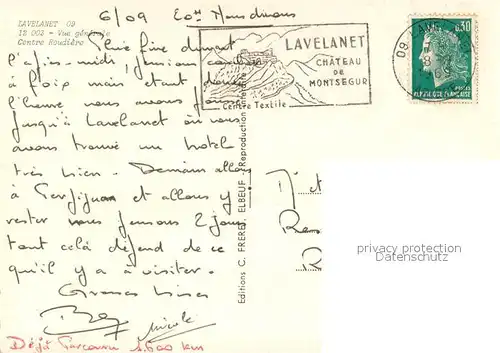 LAVELANET 09
12 002 - Vue générale
Centre Roudière
6/09
Pluie fine durant
l'après-midi, pensions coucher
à foix mais étant donné
l'heure nous avons poussé
jusqu'à Lavelanet où nous
avons trouvé un hotel
très bien. Demain allons
à Perpignan et allons y
rester nous pensons 2 jours
tout celà dépend de ce
qu'il y a à visiter.
Grosses bises
Nicole
Déjà Parcouru 1.600 km
LAVELANET
CHÂTEAU
DE
MONTSEGUR
Centre Textile
0,30
POSTES
REPUBLIQUE FRANÇAISE
Editions C. FRERET ELBEUF - Reproduction interdite
privacy protection
Datenschutz